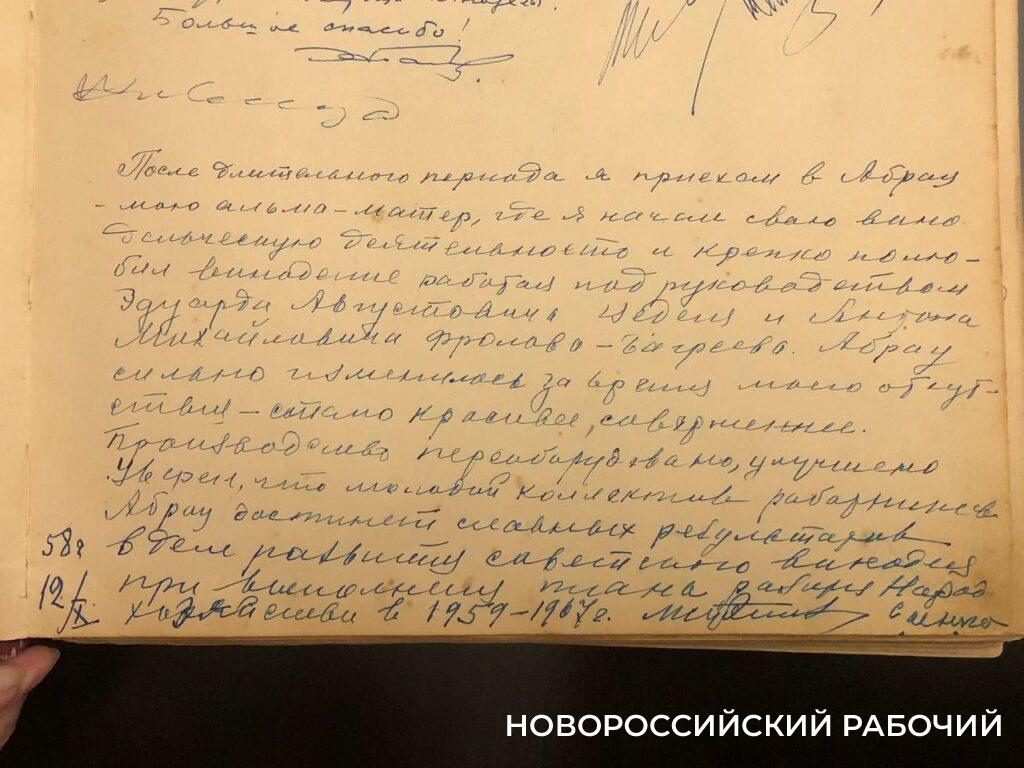 Большое спасибо!
После длительного периода я приехал в Абрау
- мою альма-матер, где я начал сваю вино
дельческую деятельность и крепко полю-
бил виноделие работая под руководством
Эдуарда Августовича Веделя и Антона
Михайловича Фролова-Багреева. Абрау
сильно изменилось за время моего отсут-
ствия - стало красивее, совершеннее.
Производство переоборудовано, улучшено
Уверен, что молодой коллектив работников
Абрау достигнет славных результатов
58г в деле развития советского виноделия
12/IX при выполнении плана развит Народ
хозяйства в 1959-1967г.
НОВОРОССИЙСКИЙ РАБОЧИЙ